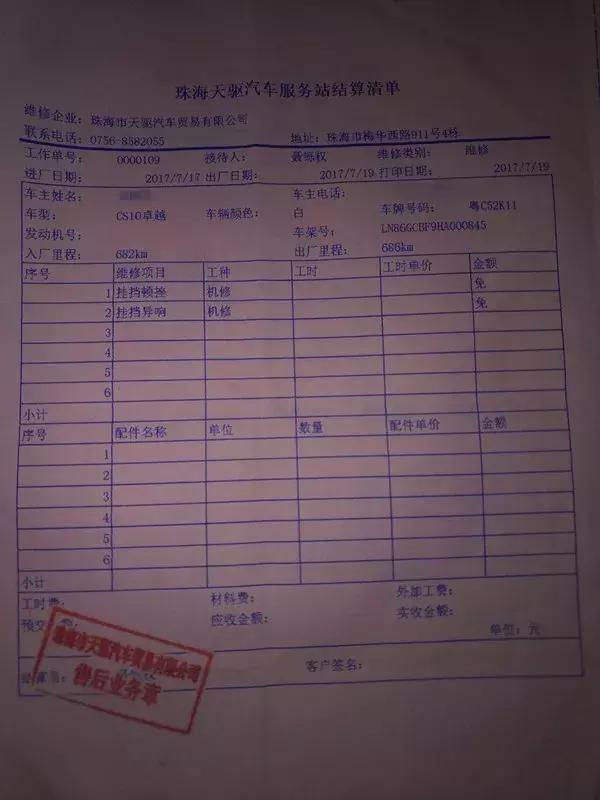 珠海天驱汽车服务站结算清单
维修企业: 珠海市天驱汽车贸易有限公司
联系电话: 0756-8582055 地址: 珠海市梅华西路911号4栋
工作单号: 0000109 接待人: 聂烁权 维修类别: 维修
进厂日期: 2017/7/17 出厂日期: 2017/7/19 打印日期: 2017/7/19
车主姓名: 车主电话:
车型: CS10卓越 车辆颜色: 白 车牌号码: 粤C52K11
发动机号: 车架号: LN86GCBF9HA000845
入厂里程: 682km 出厂里程: 686km
序号 维修项目 工种 工时 工时单价 金额
1 挂挡顿挫 机修 免
2 挂挡异响 机修 免
3
4
5
6
小计
序号 配件名称 单位 数量 配件单价 金额
1
2
3
4
5
6
小计
工时费: 材料费: 外加工费:
预交 费: 应收金额: 实收金额:
单位: 元
结算员: 客户签名:
珠海市天驱汽车贸易有限公司
售后业务章